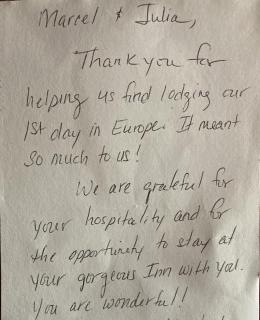 Marcel & Julia,
Thank you for
helping us find lodging our
1st day in Europe. It meant
so much to us!
We are grateful for
your hospitality and for
the opportunity to stay at
your gorgeous Inn with you.
You are wonderful!